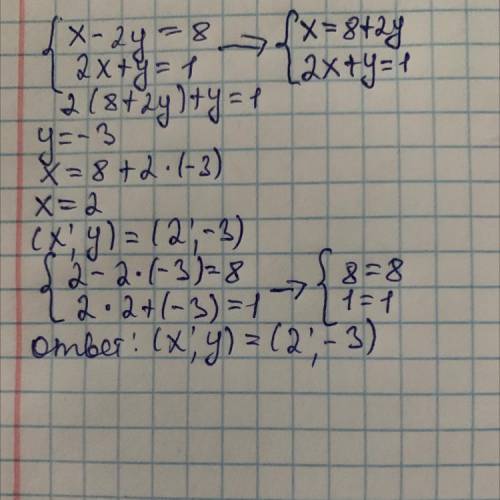 { x - 2y = 8 → { x = 8 + 2y
{ 2x + y = 1 { 2x + y = 1
2(8 + 2y) + y = 1
y = -3
x = 8 + 2 · (-3)
x = 2
(x; y) = (2; -3)
{ 2 - 2 · (-3) = 8 → { 8 = 8
{ 2 · 2 + (-3) = 1 { 1 = 1
ответ: (x; y) = (2; -3)